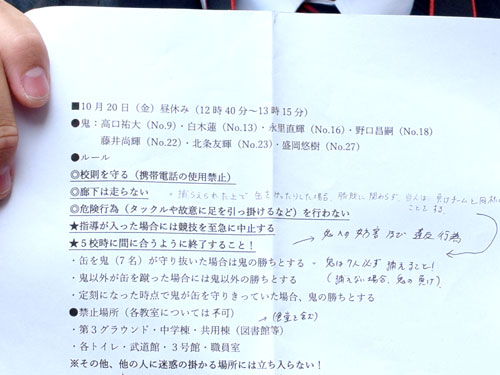 ■10月20日（金）昼休み（12時40分～13時15分）
●鬼：高口祐大（No.9）・白木蓮（No.13）・永里直輝（No.16）・野口昌嗣（No.18）
藤井尚輝（No.22）・北条友輝（No.23）・盛岡悠樹（No.27）
●ルール
◎校則を守る（携帯電話の使用禁止）
◎廊下は走らない
・捕えられた上で缶を
◎危険行為（タックルや故意に足を引っ掛けるなど）を行わない
こととする。
★指導が入った場合には競技を至急に中止する
★５校時に間に合うように終了すること！
鬼への妨害及び違反行為
・缶を鬼（7名）が守り抜いた場合は鬼の勝ちとする
・鬼は7人必ず捕えること！
・鬼以外が缶を蹴った場合には鬼以外の勝ちとする
（捕えない場合、鬼の負け）
・定刻になった時点で鬼が缶を守りきっていた場合、鬼の勝ちとする
●禁止場所（各教室については不可）
（食堂を含む）
・第３グラウンド・中学棟・共用棟（図書館等）
・各トイレ・武道館・３号館・職員室
※その他、他の人に迷惑の掛かる場所には立ち入らない！